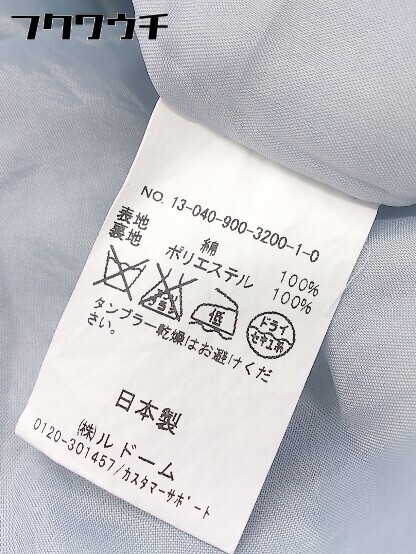 フクワウチ
NO. 13-040-900-3200-1-0
表地 綿 100%
裏地 ポリエステル 100%
エンソサラシ
低
ドライ
セキユ系
タンブラー乾燥はお避けくだ
さい。
日本製
(株)ルドーム
0120-301457/カスタマーサポート